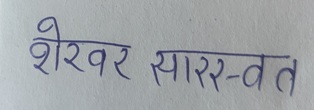 शेखर सारस्वत